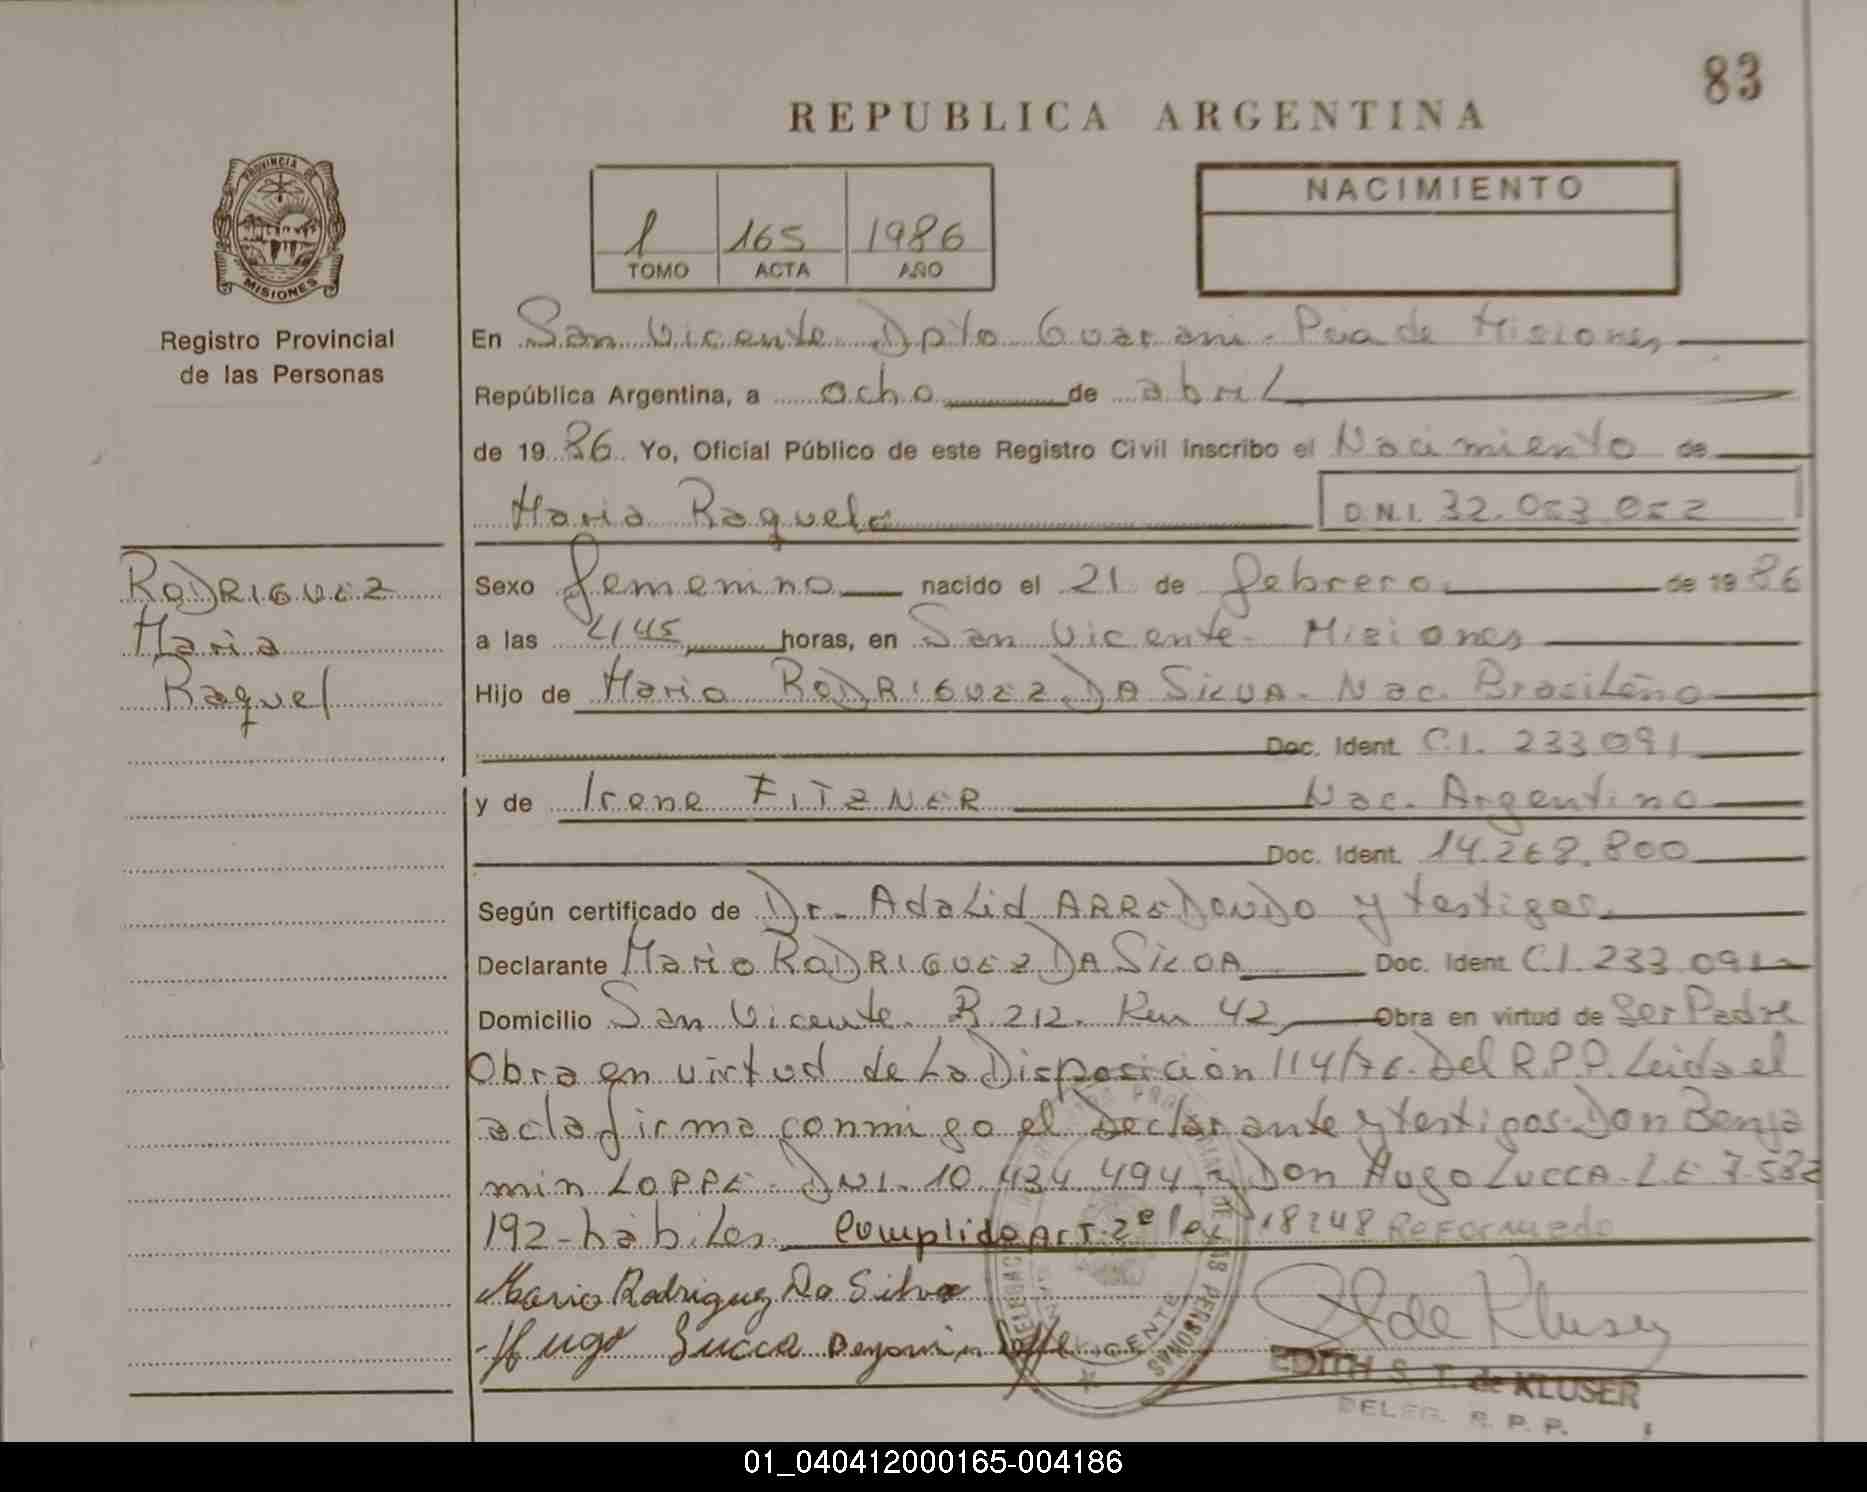 83
REPUBLICA ARGENTINA
PROVINCIA DE
MISIONES
Registro Provincial
de las Personas
1 165 1986
TOMO ACTA AÑO
NACIMIENTO
En San Vicente Dpto Guarani - Pcia de Misiones
República Argentina, a ocho de abril
de 1986 Yo, Oficial Público de este Registro Civil inscribo el Nacimiento de
Maria Raquel
D.N.I. 32.053.052
RODRIGUEZ
Maria
Raquel
Sexo femenino nacido el 21 de febrero de 1986
a las horas, en San Vicente - Misiones
Hijo de Mario RODRIGUEZ DA SILVA - Nac. Brasileño
Doc. Ident. C.I. 233.091
y de Irene FITZNER Nac. Argentino
Doc. Ident. 14.268.800
Según certificado de Dr. Adalid ARREDONDO y testigos.
Declarante Mario RODRIGUEZ DA SILVA Doc. Ident C.I. 233.091
Domicilio San Vicente - R. 212. Km 42 Obra en virtud de Ser Padre
Obra en virtud de La Disposición 114/76. Del R.P.P. Leida el
acta firma conmigo el Declarante y testigos. Don Benja
min LOPPE - DNI. 10.434.494 y Don Hugo LUCCA - L.E 7.582
192 - hábiles Cumplido Art. 2º ley 18248 Reformado
Mario Rodriguez Da Silva
Hugo Lucca Benjamin Loppe
de Kluser
EDITH S. T. de KLUSER
DELEG. R. P. P.
01_040412000165-004186